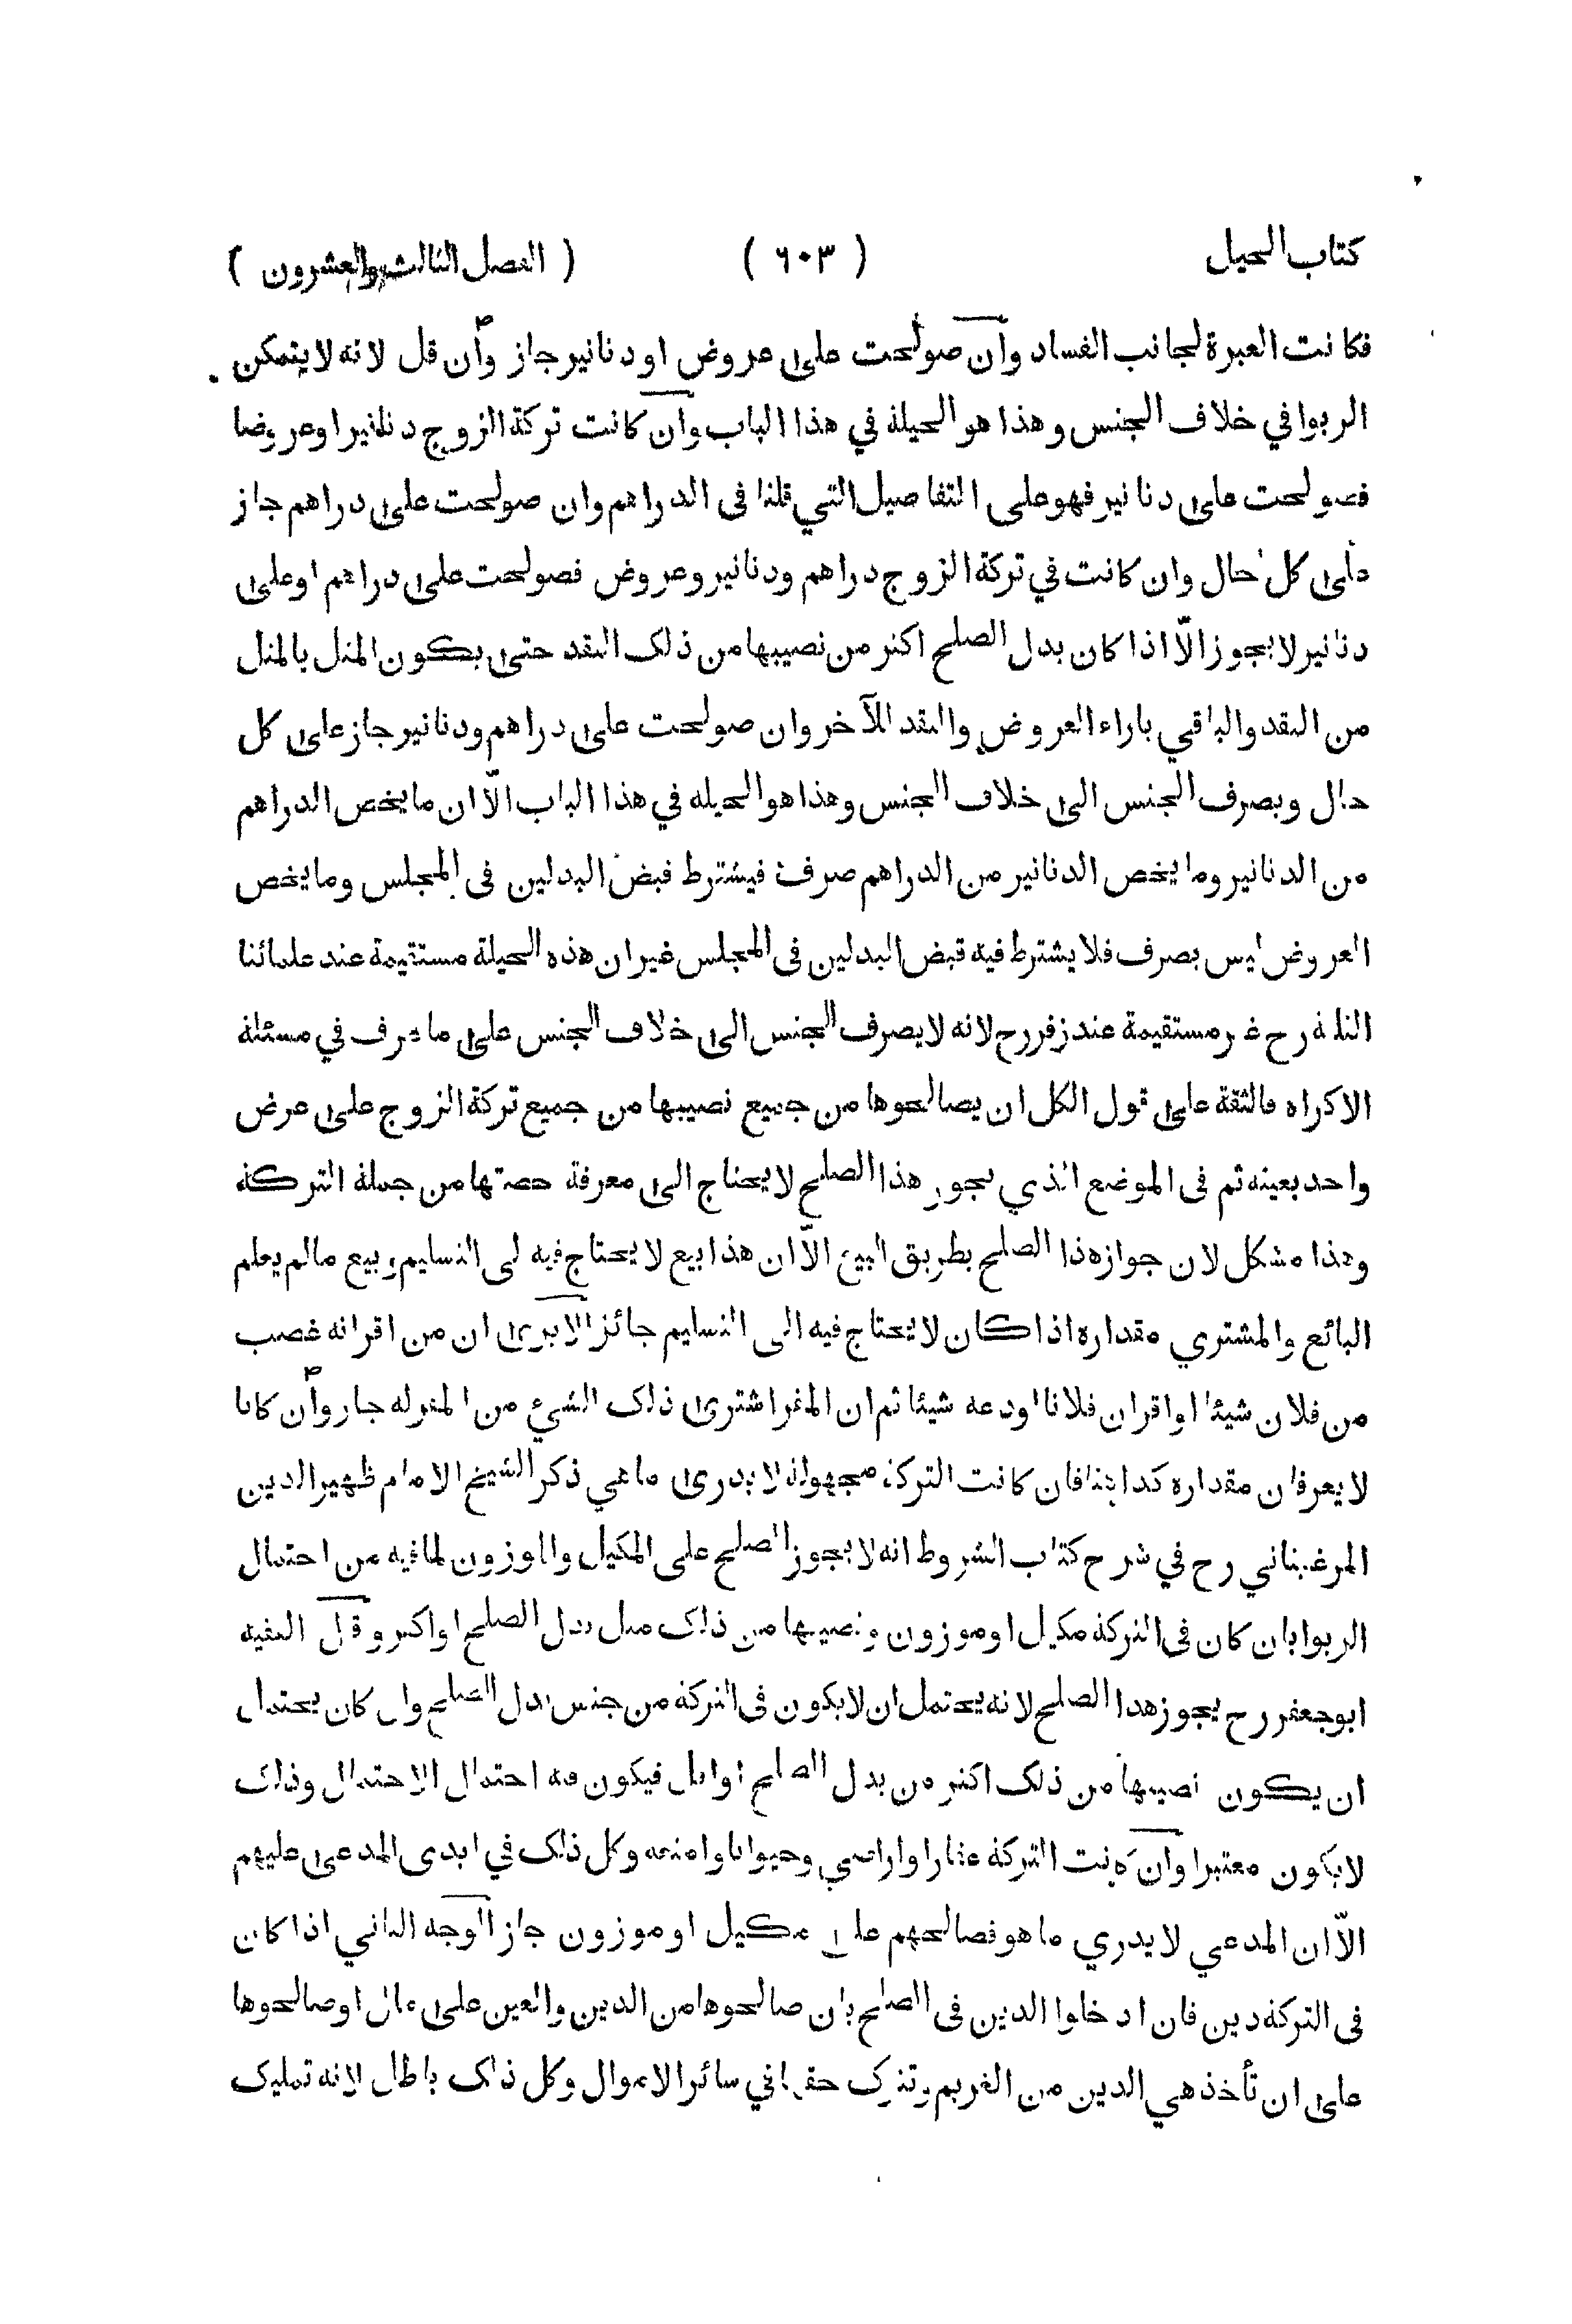 كتاب الحيل ( ٦٠٣ ) ( الفصل الثالث والعشرون )
فكانت العبرة لجانب الفساد وان صولحت على عروض او دنانير جاز وان قل لانه لا يتمكن
الربوا في خلاف الجنس وهذا هو الحيلة في هذا الباب وان كانت تركة الزوج دنانير او عروضا
فصولحت على دنانير فهو على التفاصيل التي قلنا فى الدراهم وان صولحت على دراهم جاز
على كل حال وان كانت في تركة الزوج دراهم ودنانير وعروض فصولحت على دراهم او على
دنانير لا يجوز الّا اذا كان بدل الصلح اكثر من نصيبها من ذلك النقد حتى يكون المثل بالمثل
من النقد والباقي بازاء العروض والنقد الآخر وان صولحت على دراهم ودنانير جاز على كل
حال ويصرف الجنس الى خلاف الجنس وهذا هو الحيله في هذا الباب الّا ان ما يخص الدراهم
من الدنانير وما يخص الدنانير من الدراهم صرف فيشترط قبض البدلين فى المجلس وما يخص
العروض ليس بصرف فلا يشترط فيه قبض البدلين فى المجلس غير ان هذه الحيلة مستقيمة عند علمائنا
الثلثة رح غير مستقيمة عند زفر رح لانه لا يصرف الجنس الى خلاف الجنس على ما عرف في مسئلة
الاكراه فالثقة على قول الكل ان يصالحوها من جميع نصيبها من جميع تركة الزوج على عرض
واحد بعينه ثم فى الموضع الذي يجوز هذا الصلح لا يحتاج الى معرفة حصتها من جملة التركة
وهذا مشكل لان جواز هذا الصلح بطريق البيع الّا ان هذا بيع لا يحتاج فيه الى التسليم وبيع مالم يعلم
البائع والمشتري مقداره اذا كان لا يحتاج فيه الى التسليم جائز الا يرى ان من اقر انه غصب
من فلان شيئا او اقر ان فلانا اودعه شيئا ثم ان المقر اشترى ذلك الشيء من المقر له جاز وان كانا
لا يعرفان مقداره كذا هنا فان كانت التركة مجهولة لا يدرى ما هي ذكر الشيخ الامام ظهير الدين
المرغيناني رح في شرح كتاب الشروط انه لا يجوز الصلح على المكيل والموزون لما فيه من احتمال
الربوا بان كان فى التركة مكيل او موزون ونصيبها من ذلك مثل بدل الصلح او اكثر وقال الفقيه
ابو جعفر رح يجوز هذا الصلح لانه يحتمل ان لا يكون فى التركة من جنس بدل الصلح وان كان يحتمل
ان يكون نصيبها من ذلك اكثر من بدل الصلح او اقل فيكون فيه احتمال الاحتمال وذلك
لا يكون معتبرا وان كانت التركة عقارا واراضي وحيوانا وامتعة وكل ذلك في ايدى المدعى عليهم
الّا ان المدعي لا يدري ما هو فصالحهم على مكيل او موزون جاز الوجه الثاني اذا كان
فى التركة دين فان ادخلوا الدين فى الصلح بان صالحوها من الدين والعين على مال او صالحوها
على ان تأخذ هي الدين من الغريم وتترك حقها في سائر الاموال وكل ذلك باطل لانه تمليك